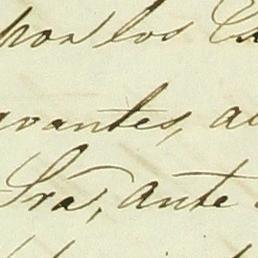 por los
avantes,
Sra, ante